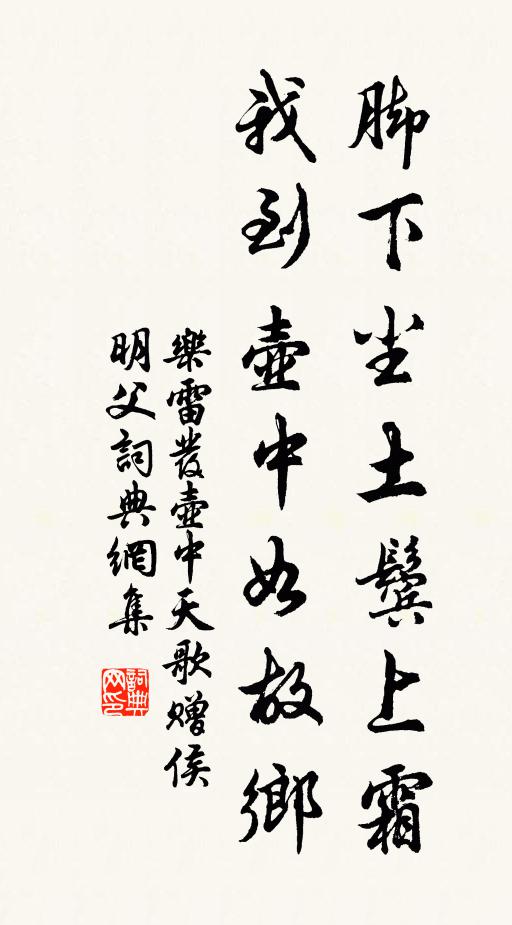 脚下尘土鬓上霜
我到壺中如故鄉
樂雷發壺中天歌贈侯
明父詞典網集
詞典网印